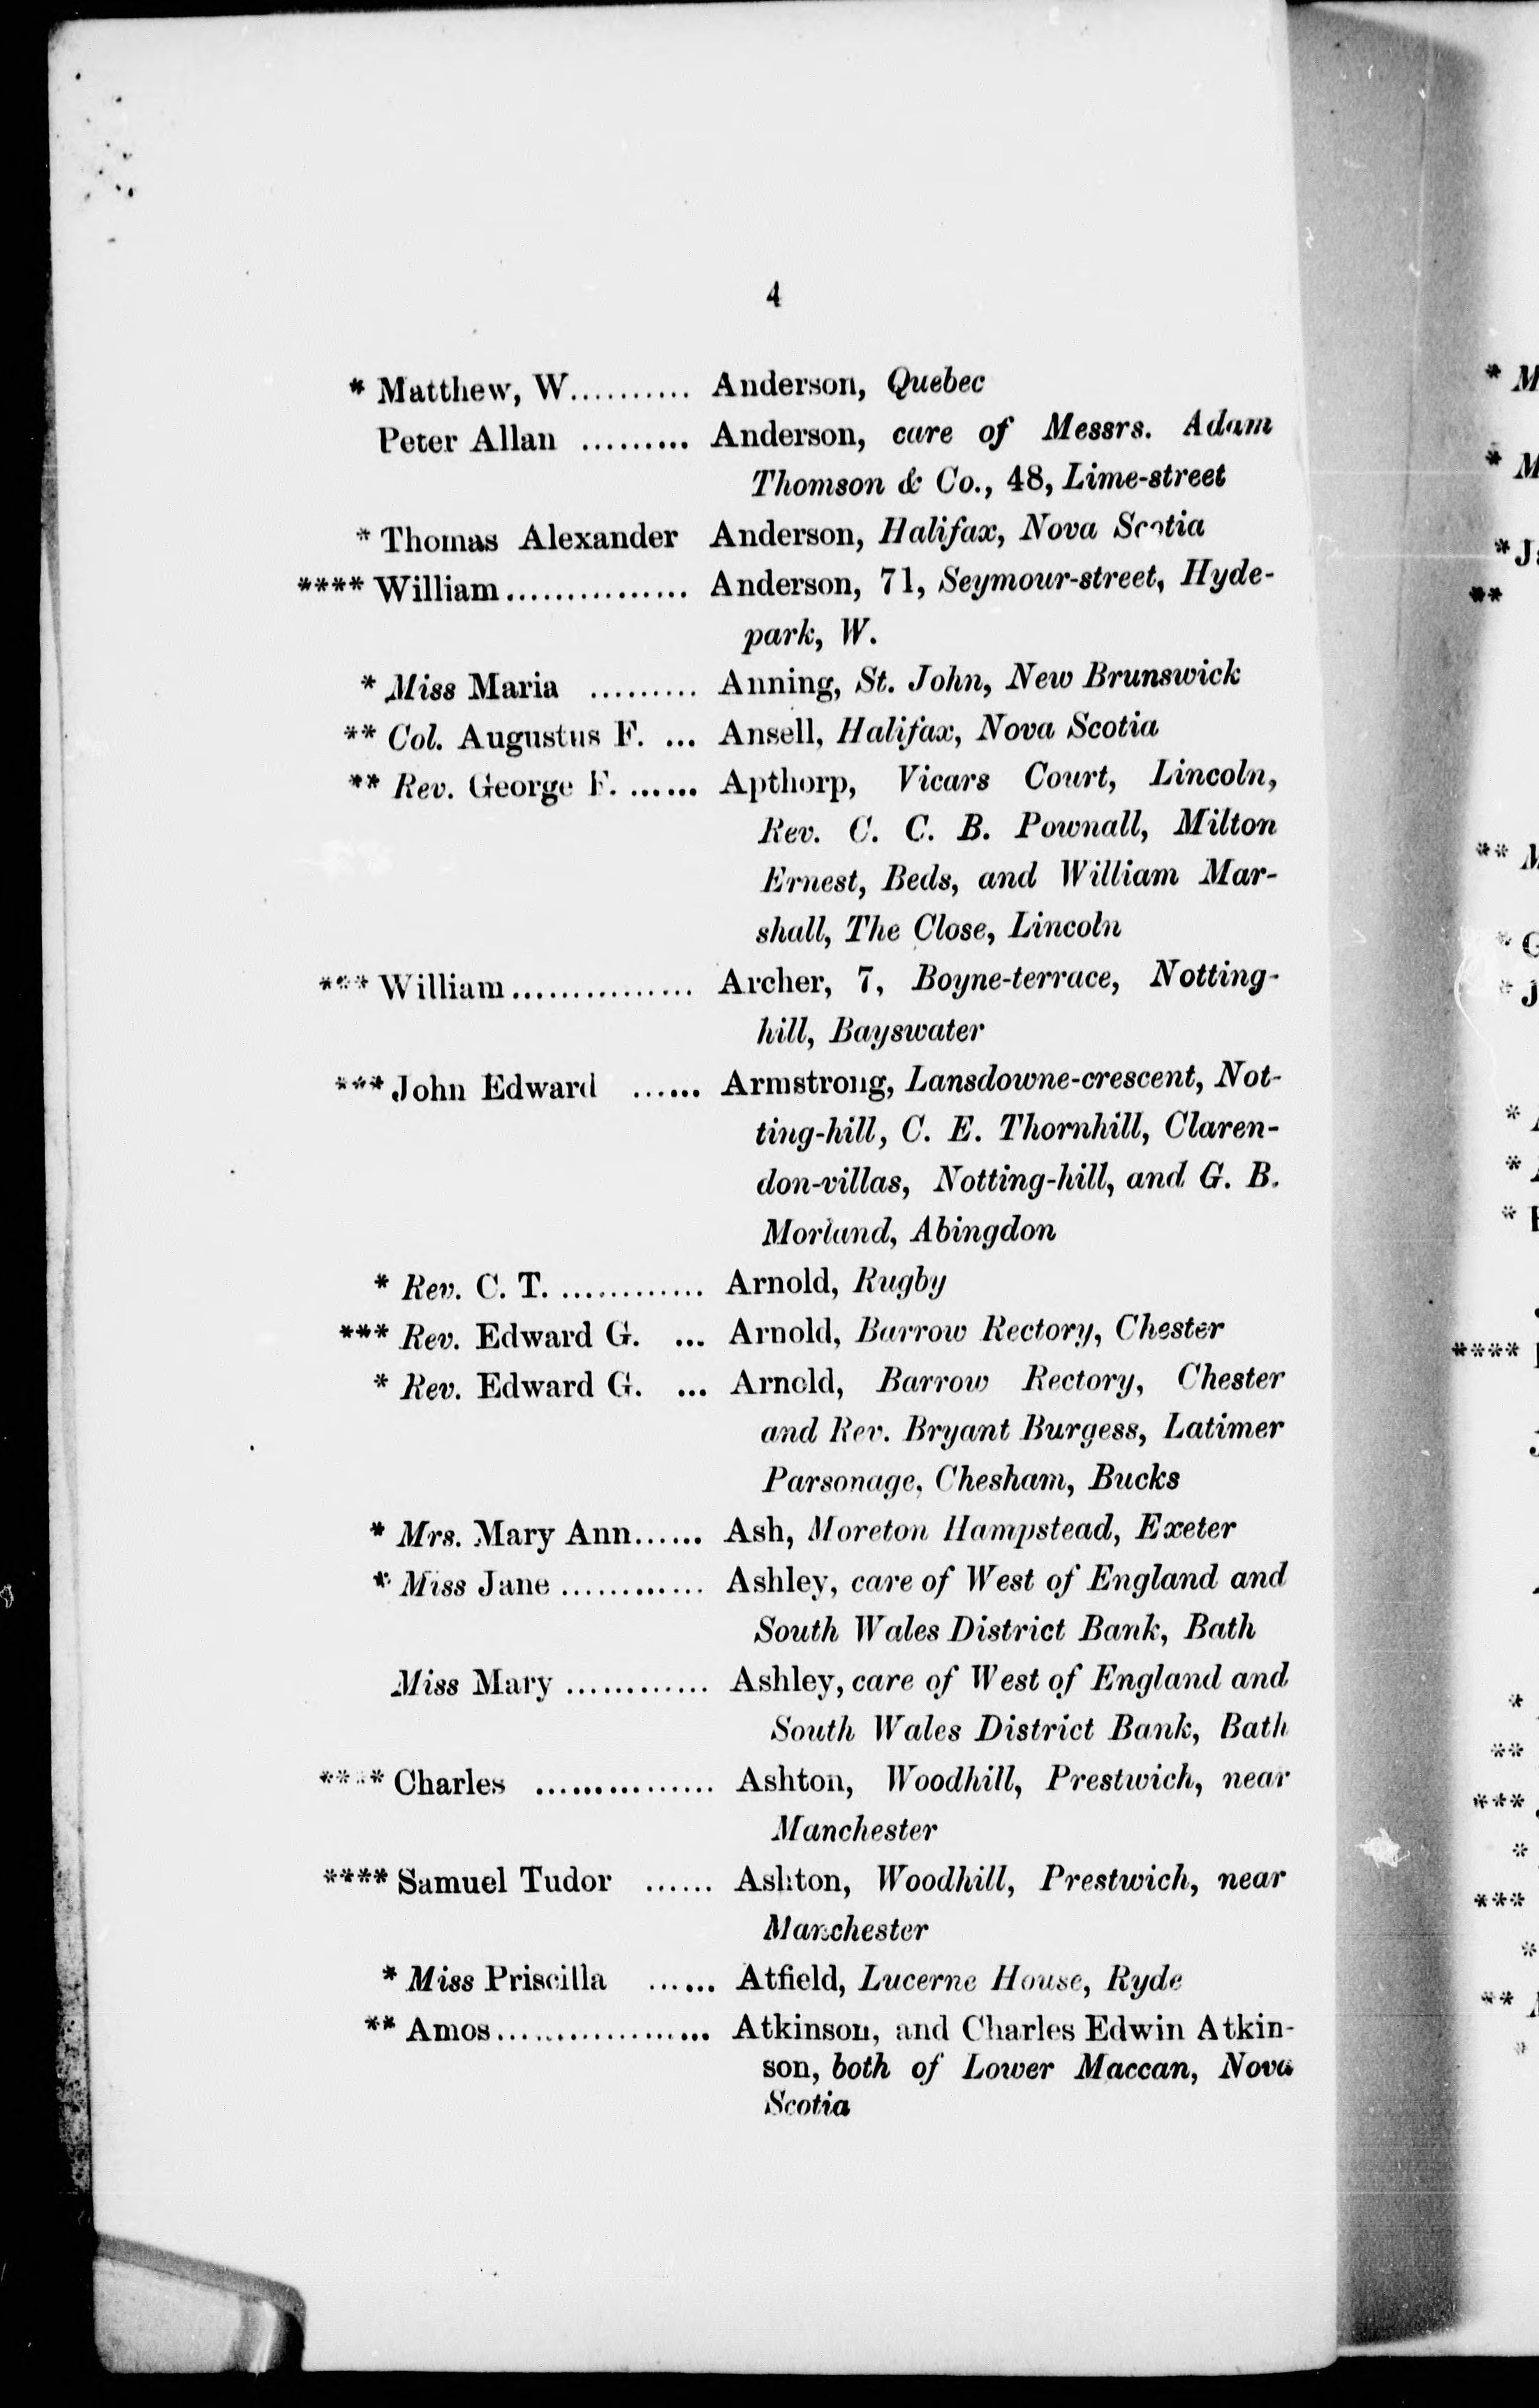 4
* Matthew, W.......... Anderson, Quebec
Peter Allan ......... Anderson, care of Messrs. Adam
Thomson & Co., 48, Lime-street
* Thomas Alexander Anderson, Halifax, Nova Scotia
**** William............... Anderson, 71, Seymour-street, Hyde-
park, W.
* Miss Maria ......... Anning, St. John, New Brunswick
** Col. Augustus F. ... Ansell, Halifax, Nova Scotia
** Rev. George F. ...... Apthorp, Vicars Court, Lincoln,
Rev. C. C. B. Pownall, Milton
Ernest, Beds, and William Mar-
shall, The Close, Lincoln
*** William............... Archer, 7, Boyne-terrace, Notting-
hill, Bayswater
*** John Edward ...... Armstrong, Lansdowne-crescent, Not-
ting-hill, C. E. Thornhill, Claren-
don-villas, Notting-hill, and G. B.
Morland, Abingdon
* Rev. C. T. ............ Arnold, Rugby
*** Rev. Edward G. ... Arnold, Barrow Rectory, Chester
* Rev. Edward G. ... Arnold, Barrow Rectory, Chester
and Rev. Bryant Burgess, Latimer
Parsonage, Chesham, Bucks
* Mrs. Mary Ann...... Ash, Moreton Hampstead, Exeter
* Miss Jane ............ Ashley, care of West of England and
South Wales District Bank, Bath
Miss Mary ............ Ashley, care of West of England and
South Wales District Bank, Bath
**** Charles ............... Ashton, Woodhill, Prestwich, near
Manchester
**** Samuel Tudor ...... Ashton, Woodhill, Prestwich, near
Manchester
* Miss Priscilla ...... Atfield, Lucerne House, Ryde
** Amos.................. Atkinson, and Charles Edwin Atkin-
son, both of Lower Maccan, Nova
Scotia